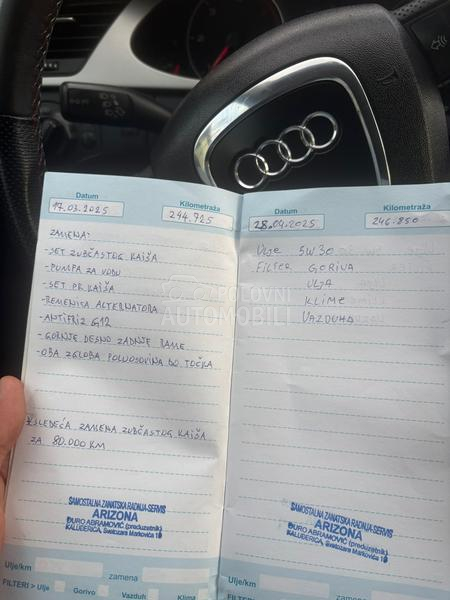 Datum
Kilometraža
17.03.2025
244.725
ZAMENA:
-SET ZUBČASTOG KAIŠA
-PUMPA ZA VODU
-SET PK KAIŠA
-REMENICA ALTERNATORA
-ANTIFRIZ G12
-GORNJE DESNO ZADNJE RAME
-OBA ZGLOBA POLUOSOVINA DO TOČKA
SLEDEĆA ZAMENA ZUBČASTOG KAIŠA
ZA 80.000 KM
SAMOSTALNA ZANATSKA RADNJA-SERVIS
ARIZONA
ĐURO ABRAMOVIĆ (preduzetnik)
KALUĐERICA, Svetozara Markovića 10
Ulje/km
zamena
FILTERI > Ulje
Gorivo
Vazduh
Klima
Datum
Kilometraža
28.04.2025
246.850
ULJE 5W30
FILTER GORIVA
ULJA
KLIME
VAZDUHA
SAMOSTALNA ZANATSKA RADNJA-SERVIS
ARIZONA
ĐURO ABRAMOVIĆ (preduzetnik)
KALUĐERICA, Svetozara Markovića 10
Ulje/km
zamena
FILTERI > Ulje
Gorivo
Vazduh
Klima
POLOVNI
AUTOMOBILI